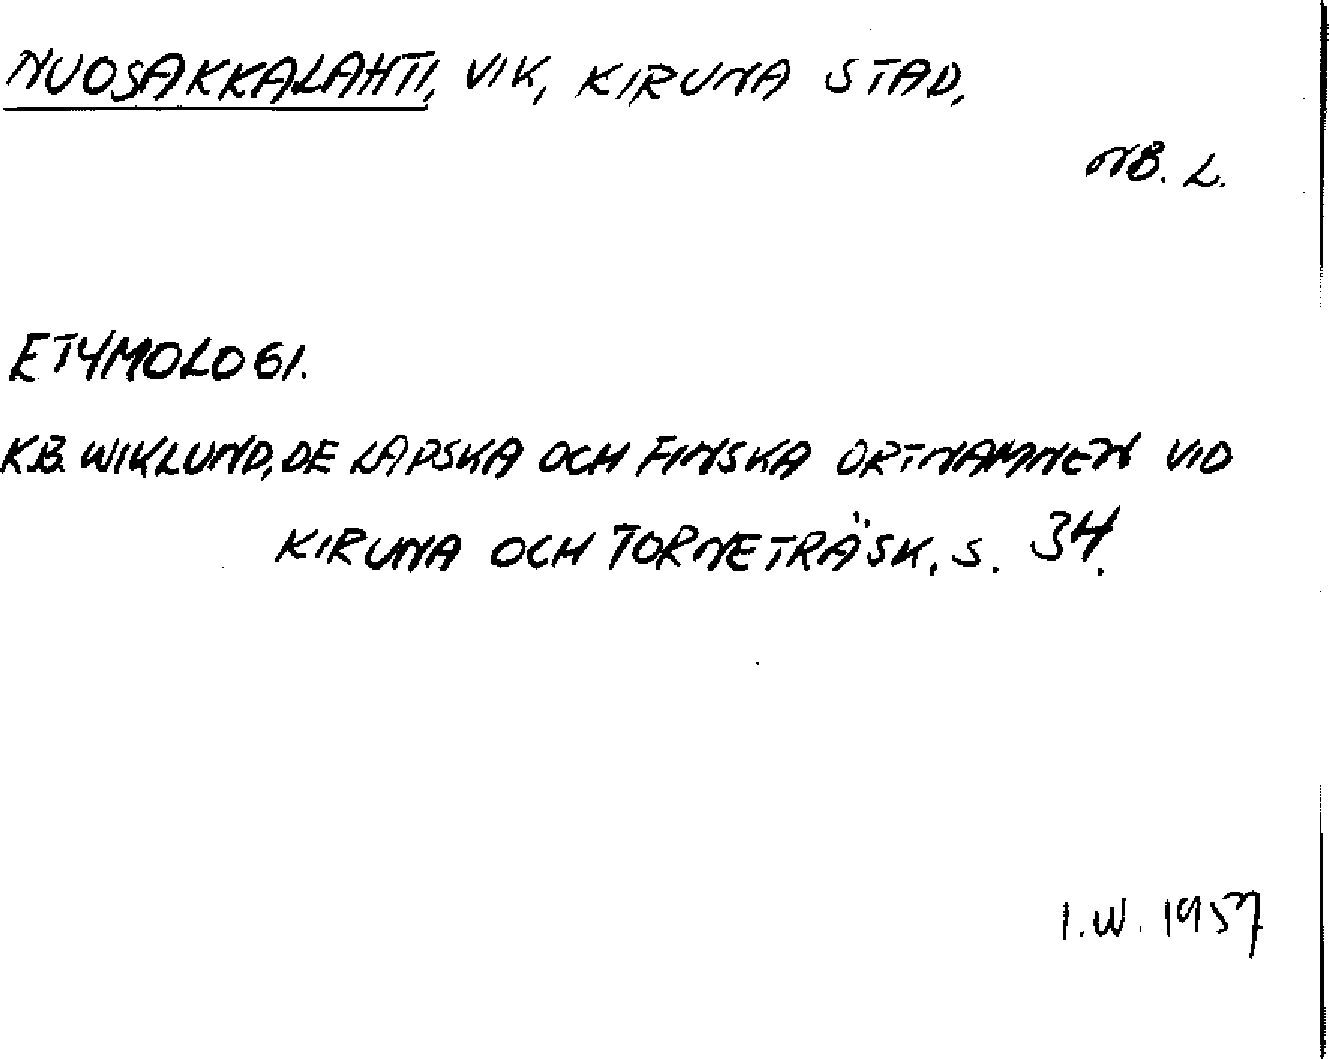 NUOSAKKALAHTI, VIK, KIRUNA STAD,
NB. L.
ETYMOLOGI.
K.B. WIKLUND, DE LAPSKA OCH FINSKA ORTNAMNEN VID
KIRUNA OCH TORNETRÄSK, S. 34.
I.W. 1957